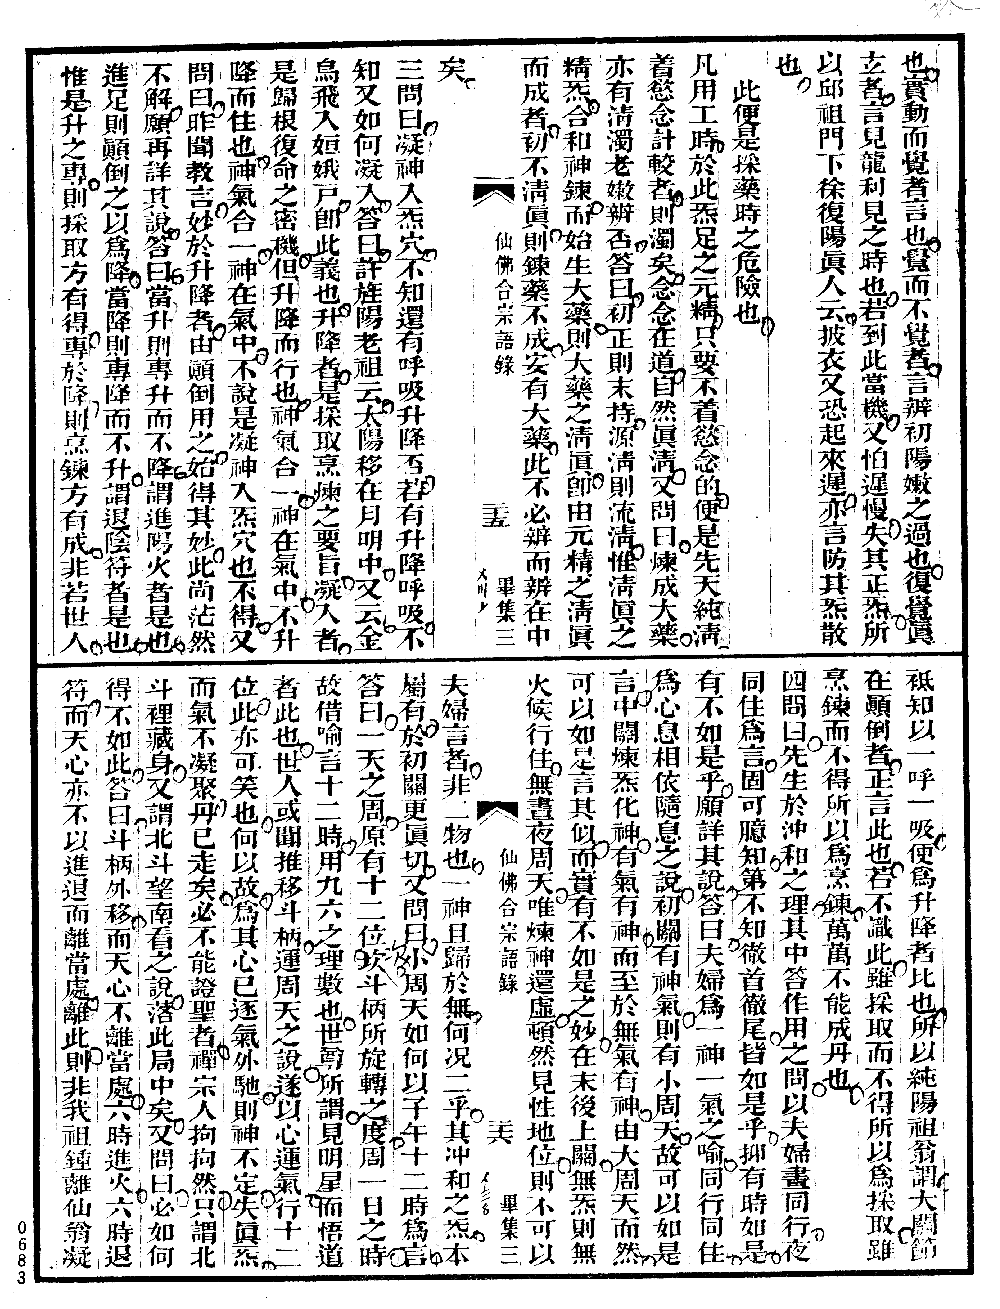 也實動而覺者言也覺而不覺者言辨初陽嫩之過也復覺眞
玄者言見龍利見之時也若到此當機又怕遲慢失其正炁所
以邱祖門下徐復陽眞人云披衣又恐起來遲亦言防其炁散
也
此便是採藥時之危險也
凡用工時於此炁足之元精只要不着慾念的便是先天純淸
着慾念計較者則濁矣念念在道自然眞淸又問曰煉成大藥
亦有淸濁老嫩辨否答曰初正則末持源淸則流淸惟淸眞之
精炁合和神鍊而始生大藥則大藥之淸眞卽由元精之淸眞
而成者初不淸眞則鍊藥不成安有大藥此不必辨而辨在中
仙佛合宗語錄
三五
畢集三
矣
三問曰凝神入炁穴不知還有呼吸升降否若有升降呼吸不
知又如何凝入答曰許旌陽老祖云太陽移在月明中又云金
烏飛入姮娥戶卽此義也升降者是採取烹煉之要旨凝入者
是歸根復命之密機但升降而行也神氣合一神在氣中不升
降而住也神氣合一神在氣中不說是凝神入炁穴也不得又
問曰昨聞教言妙於升降者由顚倒用之始得其妙此尚茫然
不解願再詳其說答曰當升則專升而不降謂進陽火者是也
進足則顚倒之以爲降當降則專降而不升謂退陰符者是也
惟是升之專則採取方有得專於降則烹鍊方有成非若世人
祗知以一呼一吸便爲升降者比也所以純陽祖翁謂大關節
在顚倒者正言此也若不識此雖採取而不得所以爲採取雖
烹鍊而不得所以爲烹鍊萬萬不能成丹也
四問曰先生於沖和之理其中答作用之問以夫婦晝同行夜
同住爲言固可臆知第不知徹首徹尾皆如是乎抑有時如是
有不如是乎願詳其說答曰夫婦爲一神一氣之喻同行同住
爲心息相依隨息之說初關有神氣則有小周天故可以如是
言中關煉炁化神有氣有神而至於無氣有神由大周天而然
可以如是言其似而實有不如是之妙在末後上關無炁則無
火候行住無晝夜周天唯煉神還虛頓然見性地位則不可以
仙佛合宗語錄
三六
畢集三
夫婦言者非二物也一神且歸於無何況二乎其沖和之炁本
屬有於初關更眞切又問曰小周天如何以子午十二時爲言
答曰一天之周原有十二位故斗柄所旋轉之度周一日之時
故借喻言十二時用九六之理數也世尊所謂見明星而悟道
者此也世人或聞推移斗柄運周天之說遂以心運氣行十二
位此亦可笑也何以故爲其心已逐氣外馳則神不定失眞炁
而氣不凝聚丹已走矣必不能證聖者禪宗人拘拘然只謂北
斗裡藏身又謂北斗望南看之說落此局中矣又問曰必如何
得不如此答曰斗柄外移而天心不離當處六時進火六時退
符而天心亦不以進退而離當處離此則非我祖鍾離仙翁凝
0683